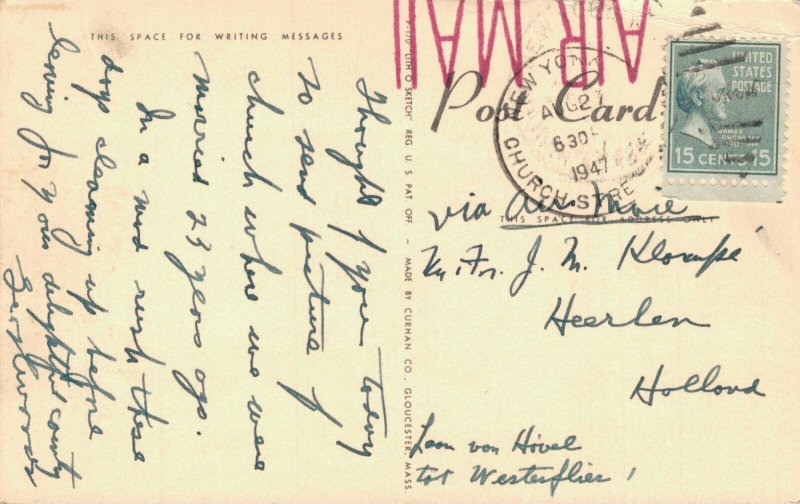 THIS SPACE FOR WRITING MESSAGES
Thought of you today
to send picture of
church where we were
married 23 years ago.
In a mad rush these
days cleaning up before
leaving for your delightful county
P-170 "LITH O SKETCH" REG. U. S. PAT. OFF. — MADE BY CURHAN CO., GLOUCESTER, MASS
AIR MAIL
Post Card
NEW YORK
AUG 27
630P
1947
CHURCH STRE
UNITED
STATES
POSTAGE
JAMES
BUCHANAN
15 CENTS 15
via Air Mail
THIS SPACE FOR ADDRESS ONLY
J. M.
Heerlen
Holland
Leon von Hövel
tot Westerflier!